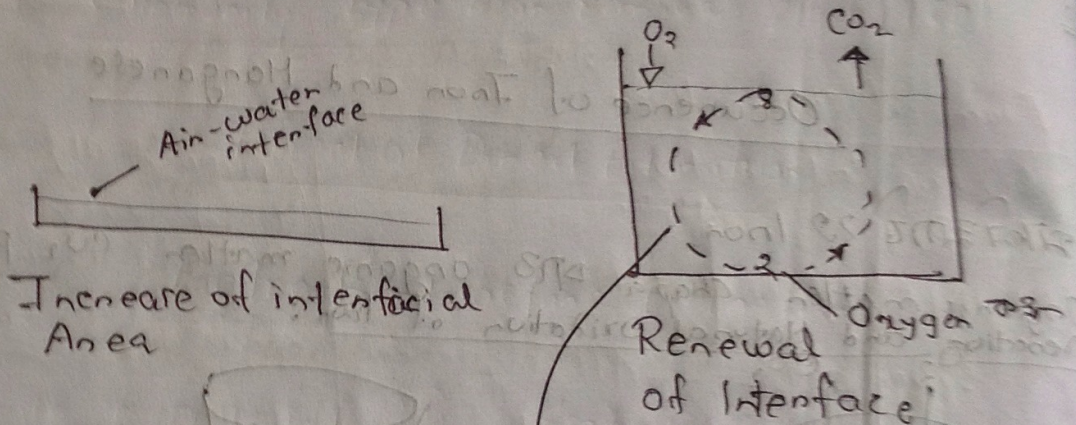 Air-water
interface
Increare of interfacial
Area
O₂
CO₂
Oxygen
Renewal
of Interface